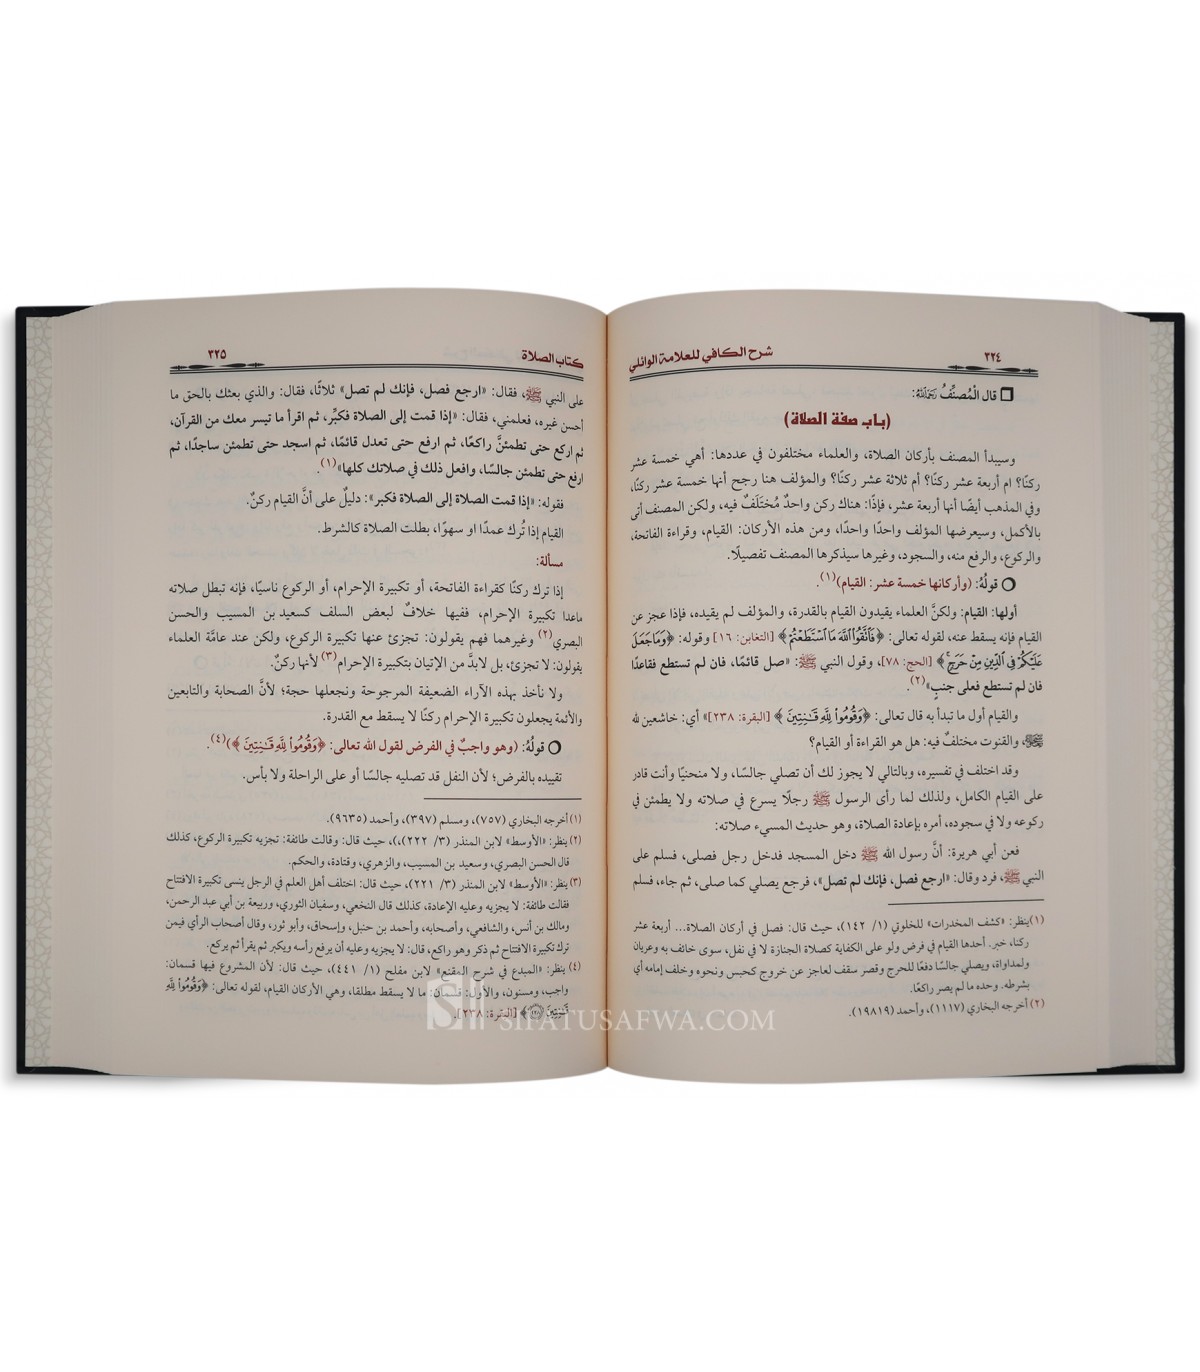 ٣٢٤
شرح الكافي للعلامة الوائلي
قال الْمُصنِّفُ رَحِمَهُ اللَّهُ:
(باب صفة الصلاة)
وسيبدأ المصنف بأركان الصلاة، والعلماء مختلفون في عددها: أهي خمسة عشر
ركنًا؟ ام أربعة عشر ركنًا؟ أم ثلاثة عشر ركنًا؟ والمؤلف هنا رجح أنها خمسة عشر ركنًا،
وفي المذهب أيضًا أنها أربعة عشر، فإذًا: هناك ركن واحدٌ مُختَلَفٌ فيه، ولكن المصنف أتى
بالأكمل، وسيعرضها المؤلف واحدًا واحدًا، ومن هذه الأركان: القيام، وقراءة الفاتحة،
والركوع، والرفع منه، والسجود، وغيرها سيذكرها المصنف تفصيلًا.
قولُهُ: (وأركانها خمسة عشر: القيام)(١).
أولها: القيام: ولكنَّ العلماء يقيدون القيام بالقدرة، والمؤلف لم يقيده، فإذا عجز عن
القيام فإنه يسقط عنه، لقوله تعالى: ﴿فَٱتَّقُوا۟ ٱللَّهَ مَا ٱسْتَطَعْتُمْ﴾ [التغابن: ١٦] وقوله: ﴿وَمَا جَعَلَ
عَلَيْكُمْ فِي ٱلدِّينِ مِنْ حَرَجٍ﴾ [الحج: ٧٨]، وقول النبي ﷺ: «صل قائمًا، فان لم تستطع فقاعدًا
فان لم تستطع فعلى جنبٍ»(٢).
والقيام أول ما تبدأ به قال تعالى: ﴿وَقُومُوا۟ لِلَّهِ قَـٰنِتِينَ﴾ [البقرة: ٢٣٨]» أي: خاشعين لله
ﷻ، والقنوت مختلفٌ فيه: هل هو القراءة أو القيام؟
وقد اختلف في تفسيره، وبالتالي لا يجوز لك أن تصلي جالسًا، ولا منحنيًا وأنت قادر
على القيام الكامل، ولذلك لما رأى الرسول ﷺ رجلًا يسرع في صلاته ولا يطمئن في
ركوعه ولا في سجوده، أمره بإعادة الصلاة، وهو حديث المسيء صلاته:
فعن أبي هريرة: أنَّ رسول الله ﷺ دخل المسجد فدخل رجل فصلى، فسلم على
النبي ﷺ، فرد وقال: «ارجع فصل، فإنك لم تصل»، فرجع يصلي كما صلى، ثم جاء، فسلم
(١) ينظر: «كشف المخدرات» للخلوتي (١/ ١٤٢)، حيث قال: فصل في أركان الصلاة... أربعة عشر
ركنا، خبر. أحدها القيام في فرض ولو على الكفاية كصلاة الجنازة لا في نفل، سوى خائف به وعريان
ولمداواة، ويصلي جالسًا دفعًا للحرج وقصر سقف لعاجز عن خروج كحبس ونحوه وخلف إمامه أي
بشرطه. وحده ما لم يصر راكعًا.
(٢) أخرجه البخاري (١١١٧)، وأحمد (١٩٨١٩).
كتاب الصلاة
٣٢٥
على النبي ﷺ، فقال: «ارجع فصل، فإنك لم تصل» ثلاثًا، فقال: والذي بعثك بالحق ما
أحسن غيره، فعلمني، فقال: «إذا قمت إلى الصلاة فكبِّر، ثم اقرأ ما تيسر معك من القرآن،
ثم اركع حتى تطمئنَّ راكعًا، ثم ارفع حتى تعدل قائمًا، ثم اسجد حتى تطمئن ساجدًا، ثم
ارفع حتى تطمئن جالسًا، وافعل ذلك في صلاتك كلها»(١).
فقوله: «إذا قمت الصلاة إلى الصلاة فكبر»: دليلٌ على أنَّ القيام ركنٌ.
القيام إذا تُرك عمدًا او سهوًا، بطلت الصلاة كالشرط.
مسألة:
إذا ترك ركنًا كقراءة الفاتحة، أو تكبيرة الإحرام، أو الركوع ناسيًا، فإنه تبطل صلاته
ماعدا تكبيرة الإحرام، ففيها خلافٌ لبعض السلف كسعيد بن المسيب والحسن
البصري(٢) وغيرهما فهم يقولون: تجزئ عنها تكبيرة الركوع، ولكن عند عامَّة العلماء
يقولون: لا تجزئ، بل لابدَّ من الإتيان بتكبيرة الإحرام(٣) لأنها ركنٌ.
ولا نأخذ بهذه الآراء الضعيفة المرجوحة ونجعلها حجة؛ لأنَّ الصحابة والتابعين
والأئمة يجعلون تكبيرة الإحرام ركنًا لا يسقط مع القدرة.
قولُهُ: (وهو واجبٌ في الفرض لقول الله تعالى: ﴿وَقُومُوا۟ لِلَّهِ قَـٰنِتِينَ﴾)(٤).
تقييده بالفرض؛ لأن النفل قد تصليه جالسًا أو على الراحلة ولا بأس.
(١) أخرجه البخاري (٧٥٧)، ومسلم (٣٩٧)، وأحمد (٩٦٣٥).
(٢) ينظر: «الأوسط» لابن المنذر (٣/ ٢٢٢)،)، حيث قال: وقالت طائفة: تجزيه تكبيرة الركوع، كذلك
قال الحسن البصري، وسعيد بن المسيب، والزهري، وقتادة، والحكم.
(٣) ينظر: «الأوسط» لابن المنذر (٣/ ٢٢١)، حيث قال: اختلف أهل العلم في الرجل ينسى تكبيرة الافتتاح
فقالت طائفة: لا يجزيه وعليه الإعادة، كذلك قال النخعي، وسفيان الثوري، وربيعة بن أبي عبد الرحمن،
ومالك بن أنس، والشافعي، وأصحابه، وأحمد بن حنبل، وإسحاق، وأبو ثور، وقال أصحاب الرأي فيمن
ترك تكبيرة الافتتاح ثم ذكر وهو راكع، قال: لا يجزيه وعليه أن يرفع رأسه ويكبر ثم يقرأ ثم يركع.
(٤) ينظر: «المبدع في شرح المقنع» لابن مفلح (١/ ٤٤١)، حيث قال: لأن المشروع فيها قسمان:
واجب، ومسنون، والأول: قسمان: ما لا يسقط مطلقا، وهي الأركان القيام، لقوله تعالى: ﴿وَقُومُوا۟ لِلَّهِ
قَـٰنِتِينَ ۝٢٣٨﴾ [البقرة: ٢٣٨].
SIFATUSAFWA.COM